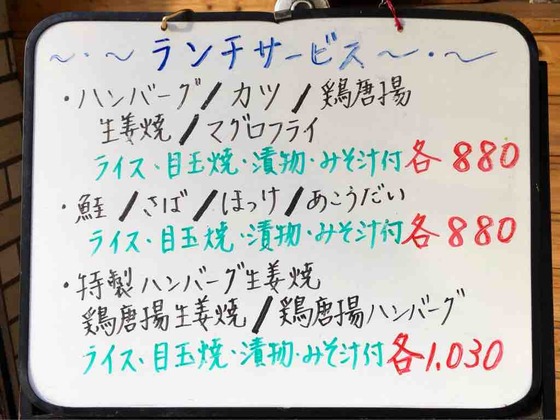 ～・～ランチサービス～・～
・ハンバーグ/カツ/鶏唐揚
生姜焼/マグロフライ
ライス・目玉焼・漬物・みそ汁付各880
・鮭/さば/ほっけ/あこうだい
ライス・目玉焼・漬物・みそ汁付各880
・特製ハンバーグ生姜焼
鶏唐揚生姜焼/鶏唐揚ハンバーグ
ライス・目玉焼・漬物・みそ汁付各1.030